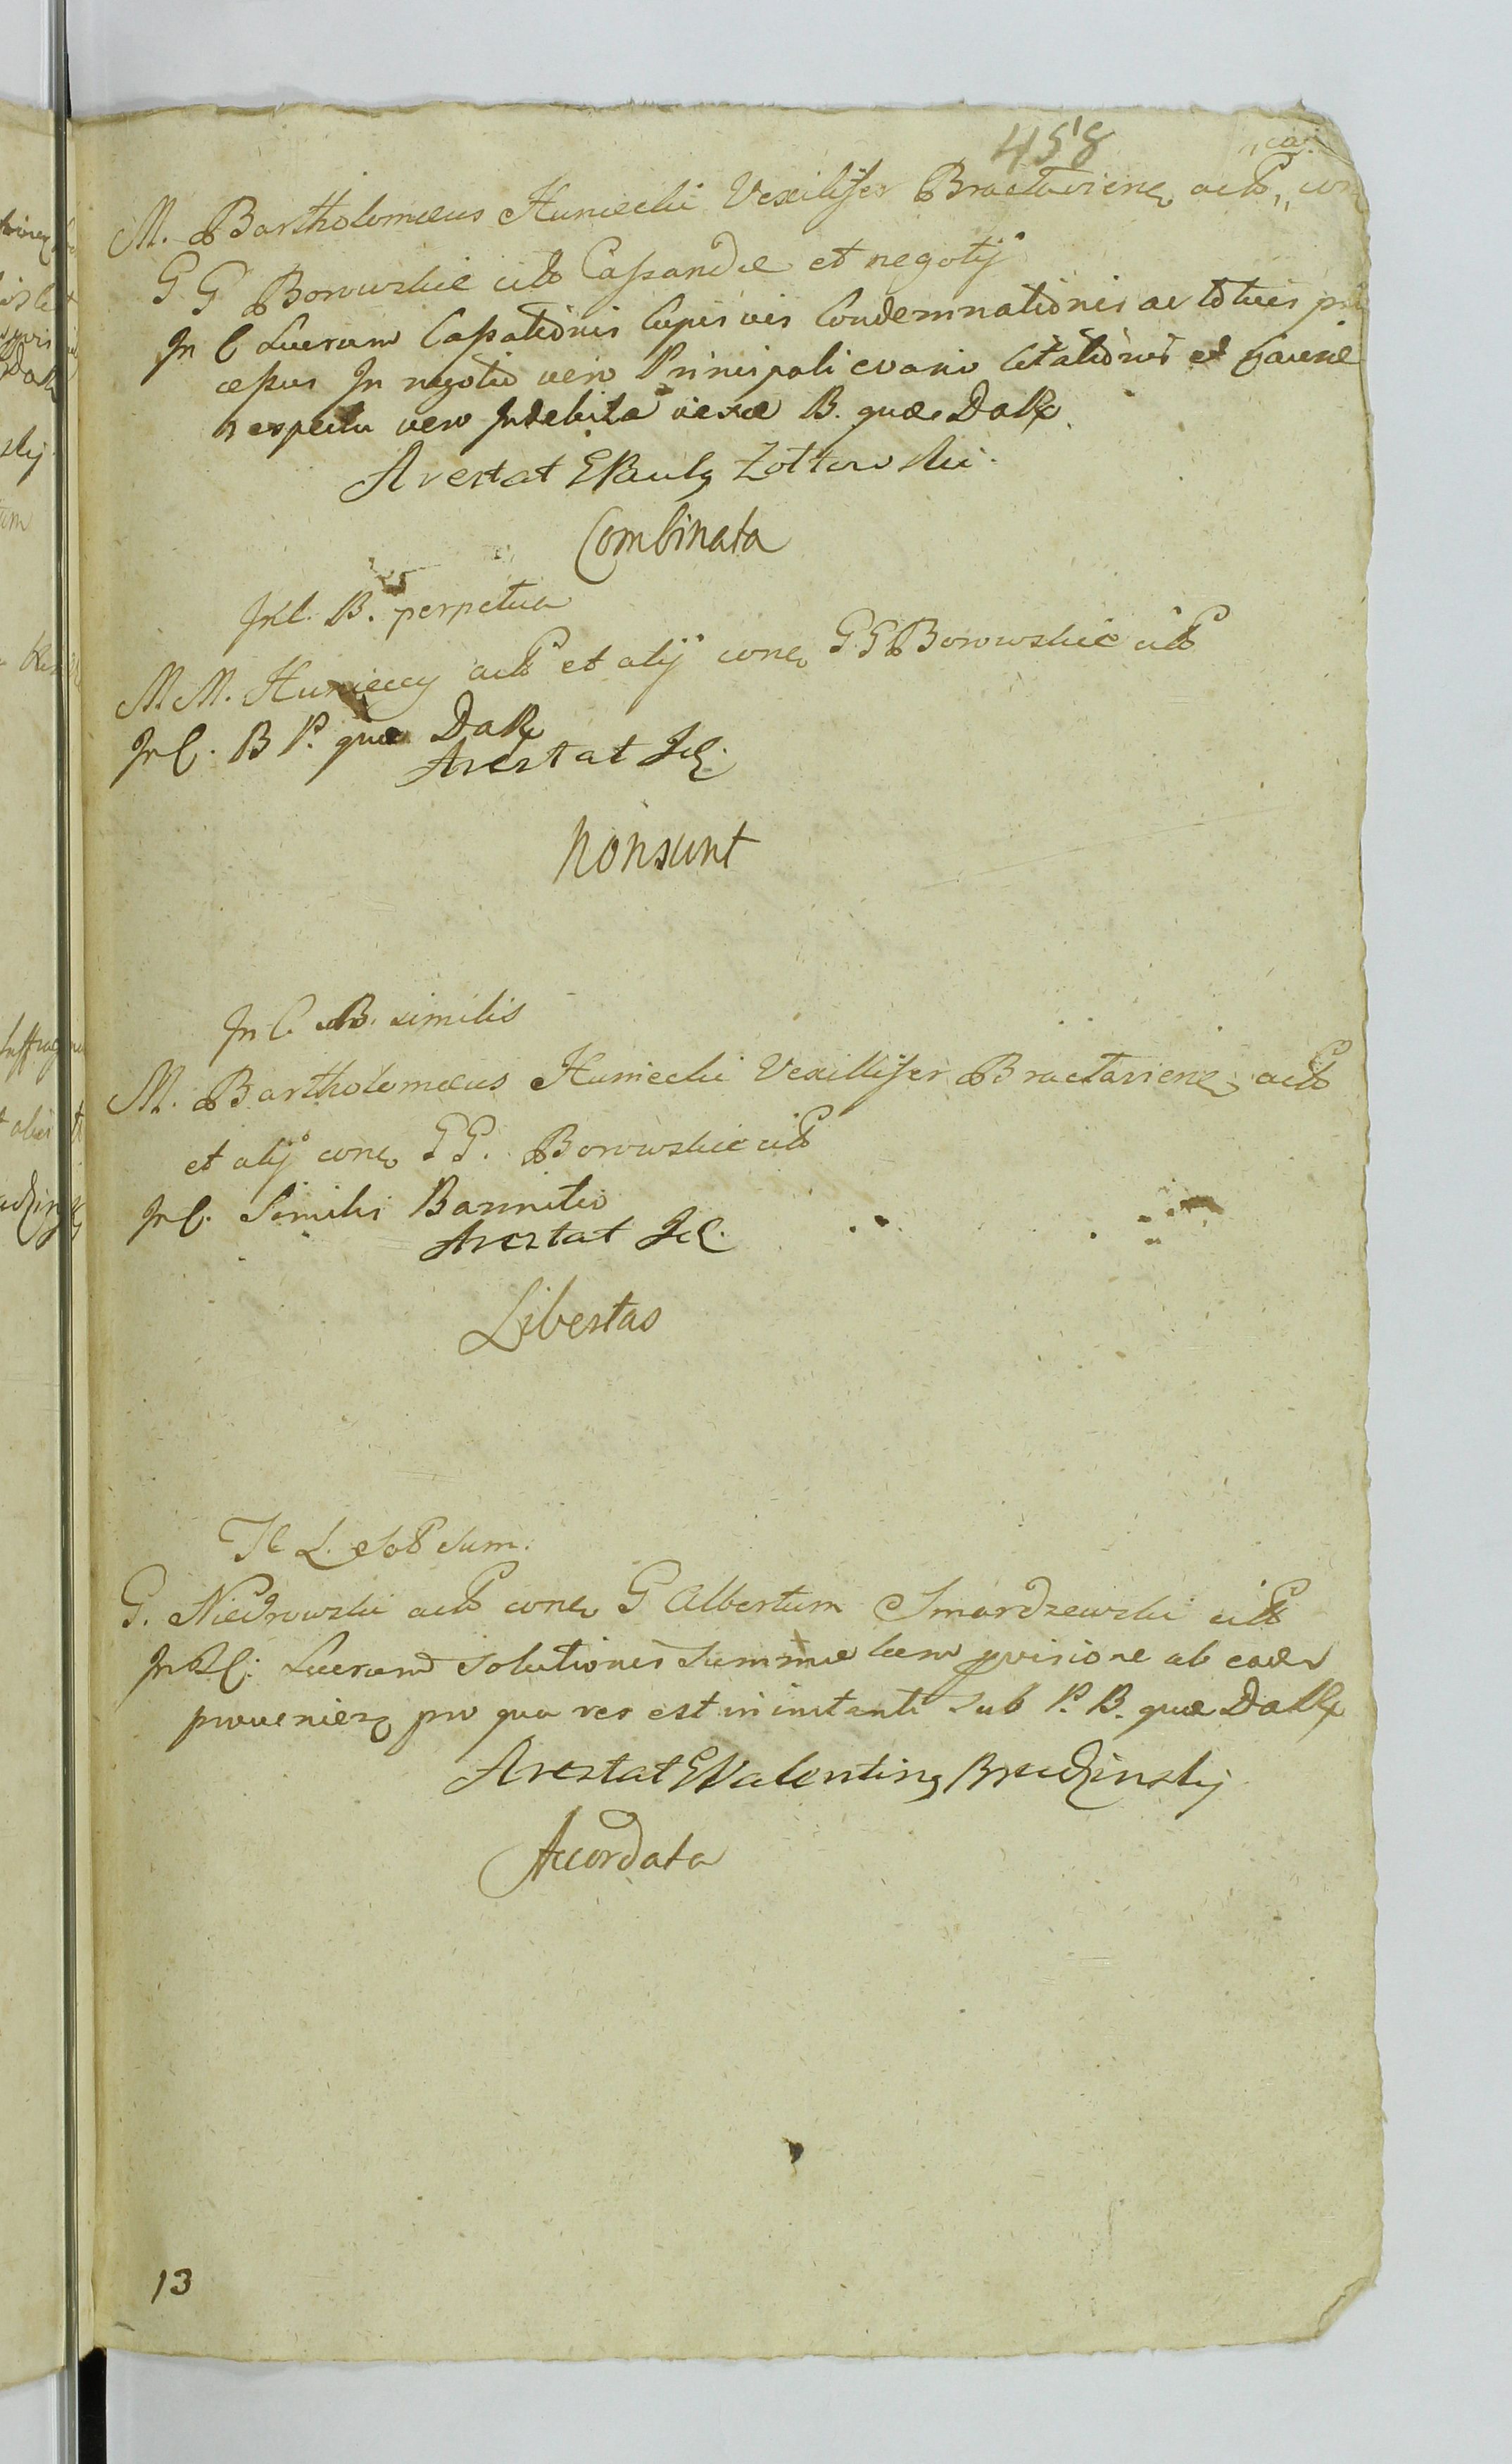 458
M. Bartholomeus Huniecki Vexilifer Braclaviens actor con
G G Borowskie citt Cassandae et negotij
In C Luerum Cassationis cujusvis Condemnationis ac totius
In negotio vero Principali evasio Citationis et Causae
respectu vero Indebita vexae B. quae Dallr
Arestat G Paulg Zołtowski
Combinata
In C. B. perpetua
M.M. Hunieccy actt et alij cone G G Borowskie citt
In C. B P. quae Dallr
Arestat Id.
Non sunt
In C. B. similis
M. Bartholomeus Huniecki Vexillifer Braclaviene actt
et alij cone G G. Borowskie citt
In C. Similis Bannitio
Arestat Id.
Libertas
G. Niedrowski actt cone G Albertum Smardzewski citt
Luerum solutionis summae cum provisione ab eade
provenien pro qua res est in instanti sub P. B. quae Dallr
Arestat G Valenting Brudzinskij
Acordata
13